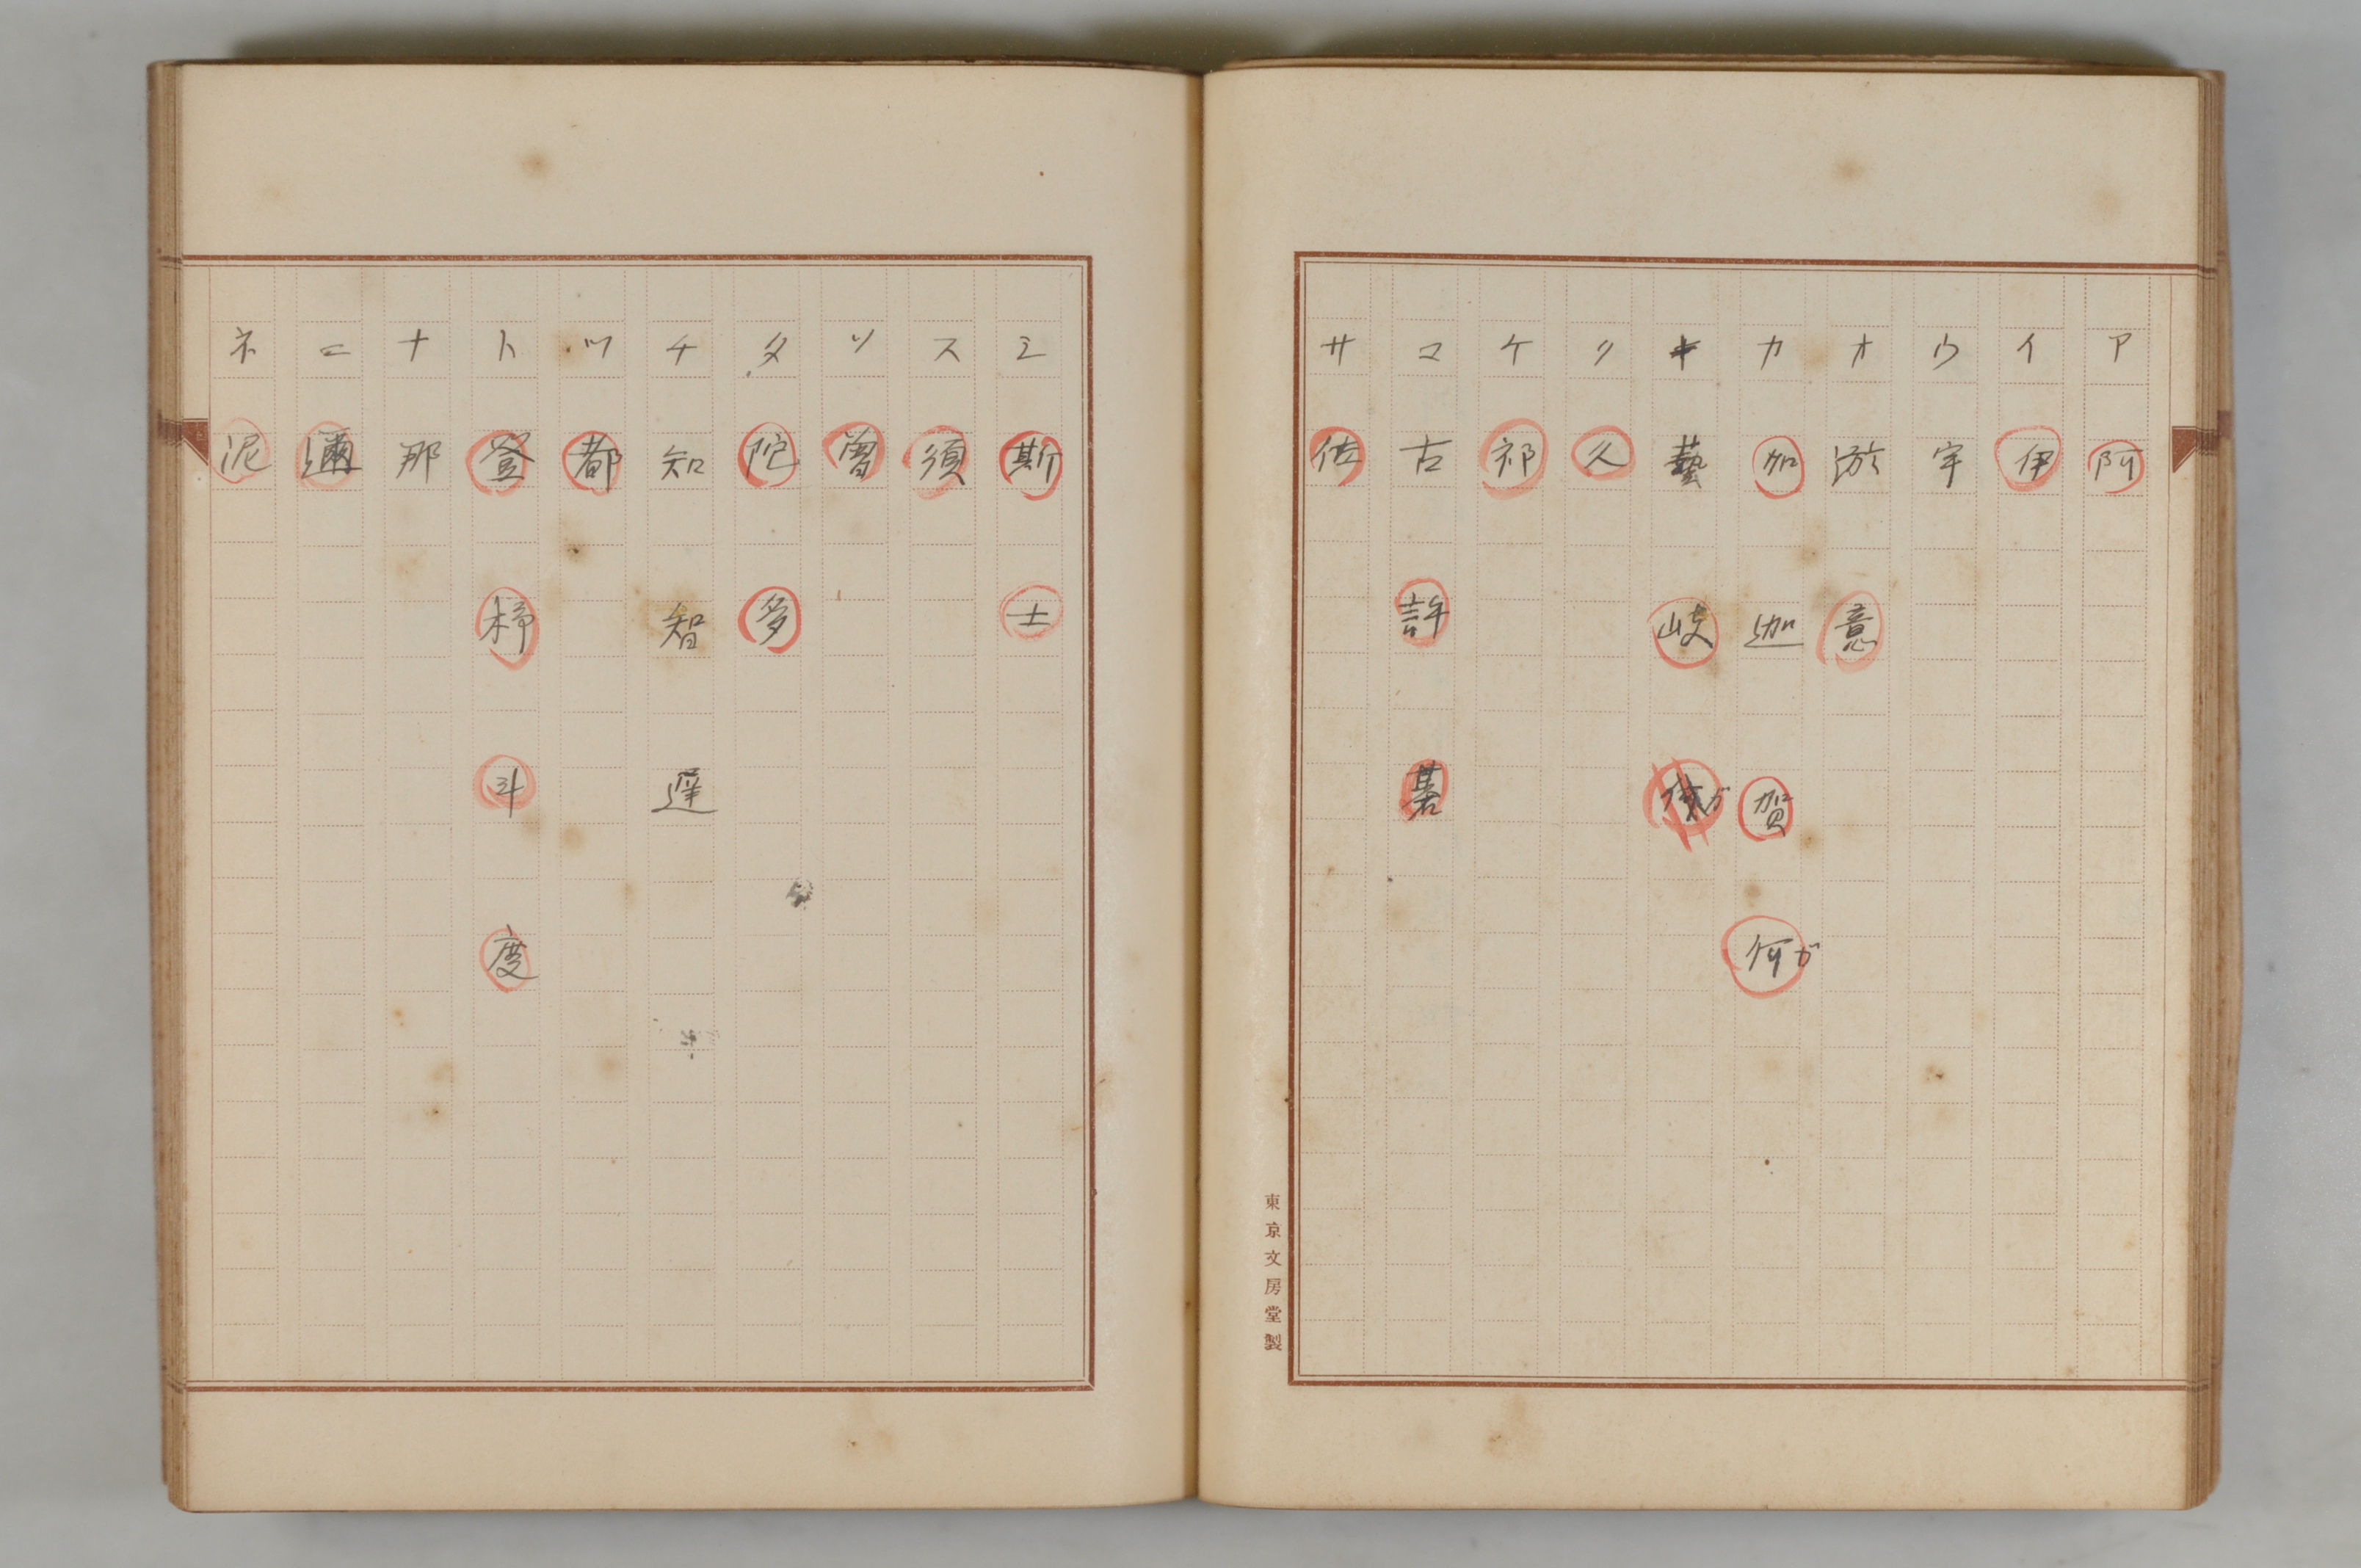 ア 阿
イ 伊
ウ 宇
オ 游 意
カ 加 迦 賀 何ガ
キ 藝 岐
ク 久
ケ 祁
コ 古 許 碁
サ 佐
東京文房堂製
シ 斯 士
ス 須
ソ 曽
タ 陀 多
チ 知 智 遅
ツ 都
ト 登 杼 斗 度
ナ 那
ニ 邇
ネ 泥